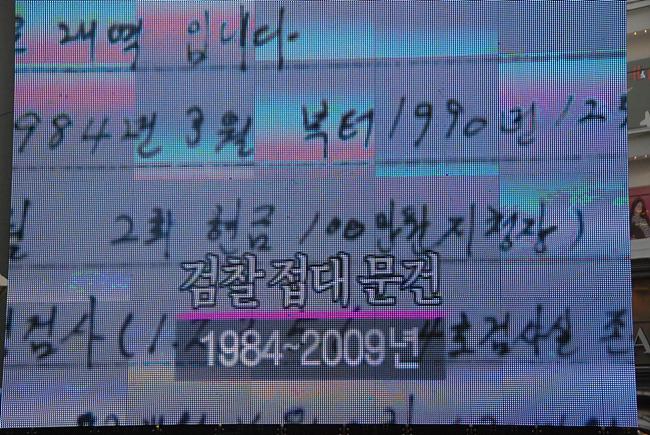 내역 입니다.
1984년 3월 부터 1990년 12
월 2회 현금 100만원 지청장)
검찰 접대 문건
검사(1. 4호검사실 존
1984~2009년